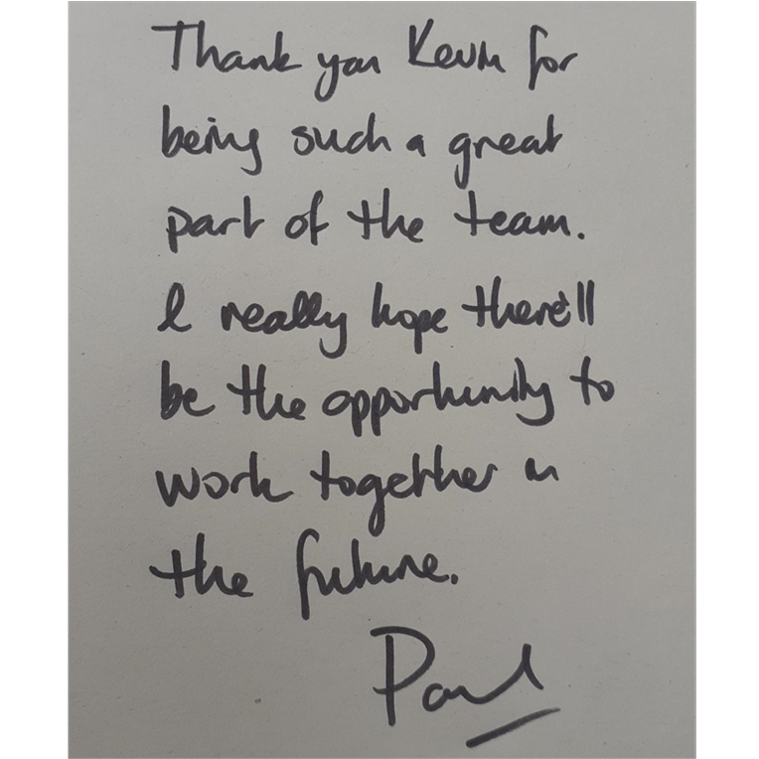 Thank you Kevin for
being such a great
part of the team.
I really hope there'll
be the opportunity to
work together in
the future.
Paul